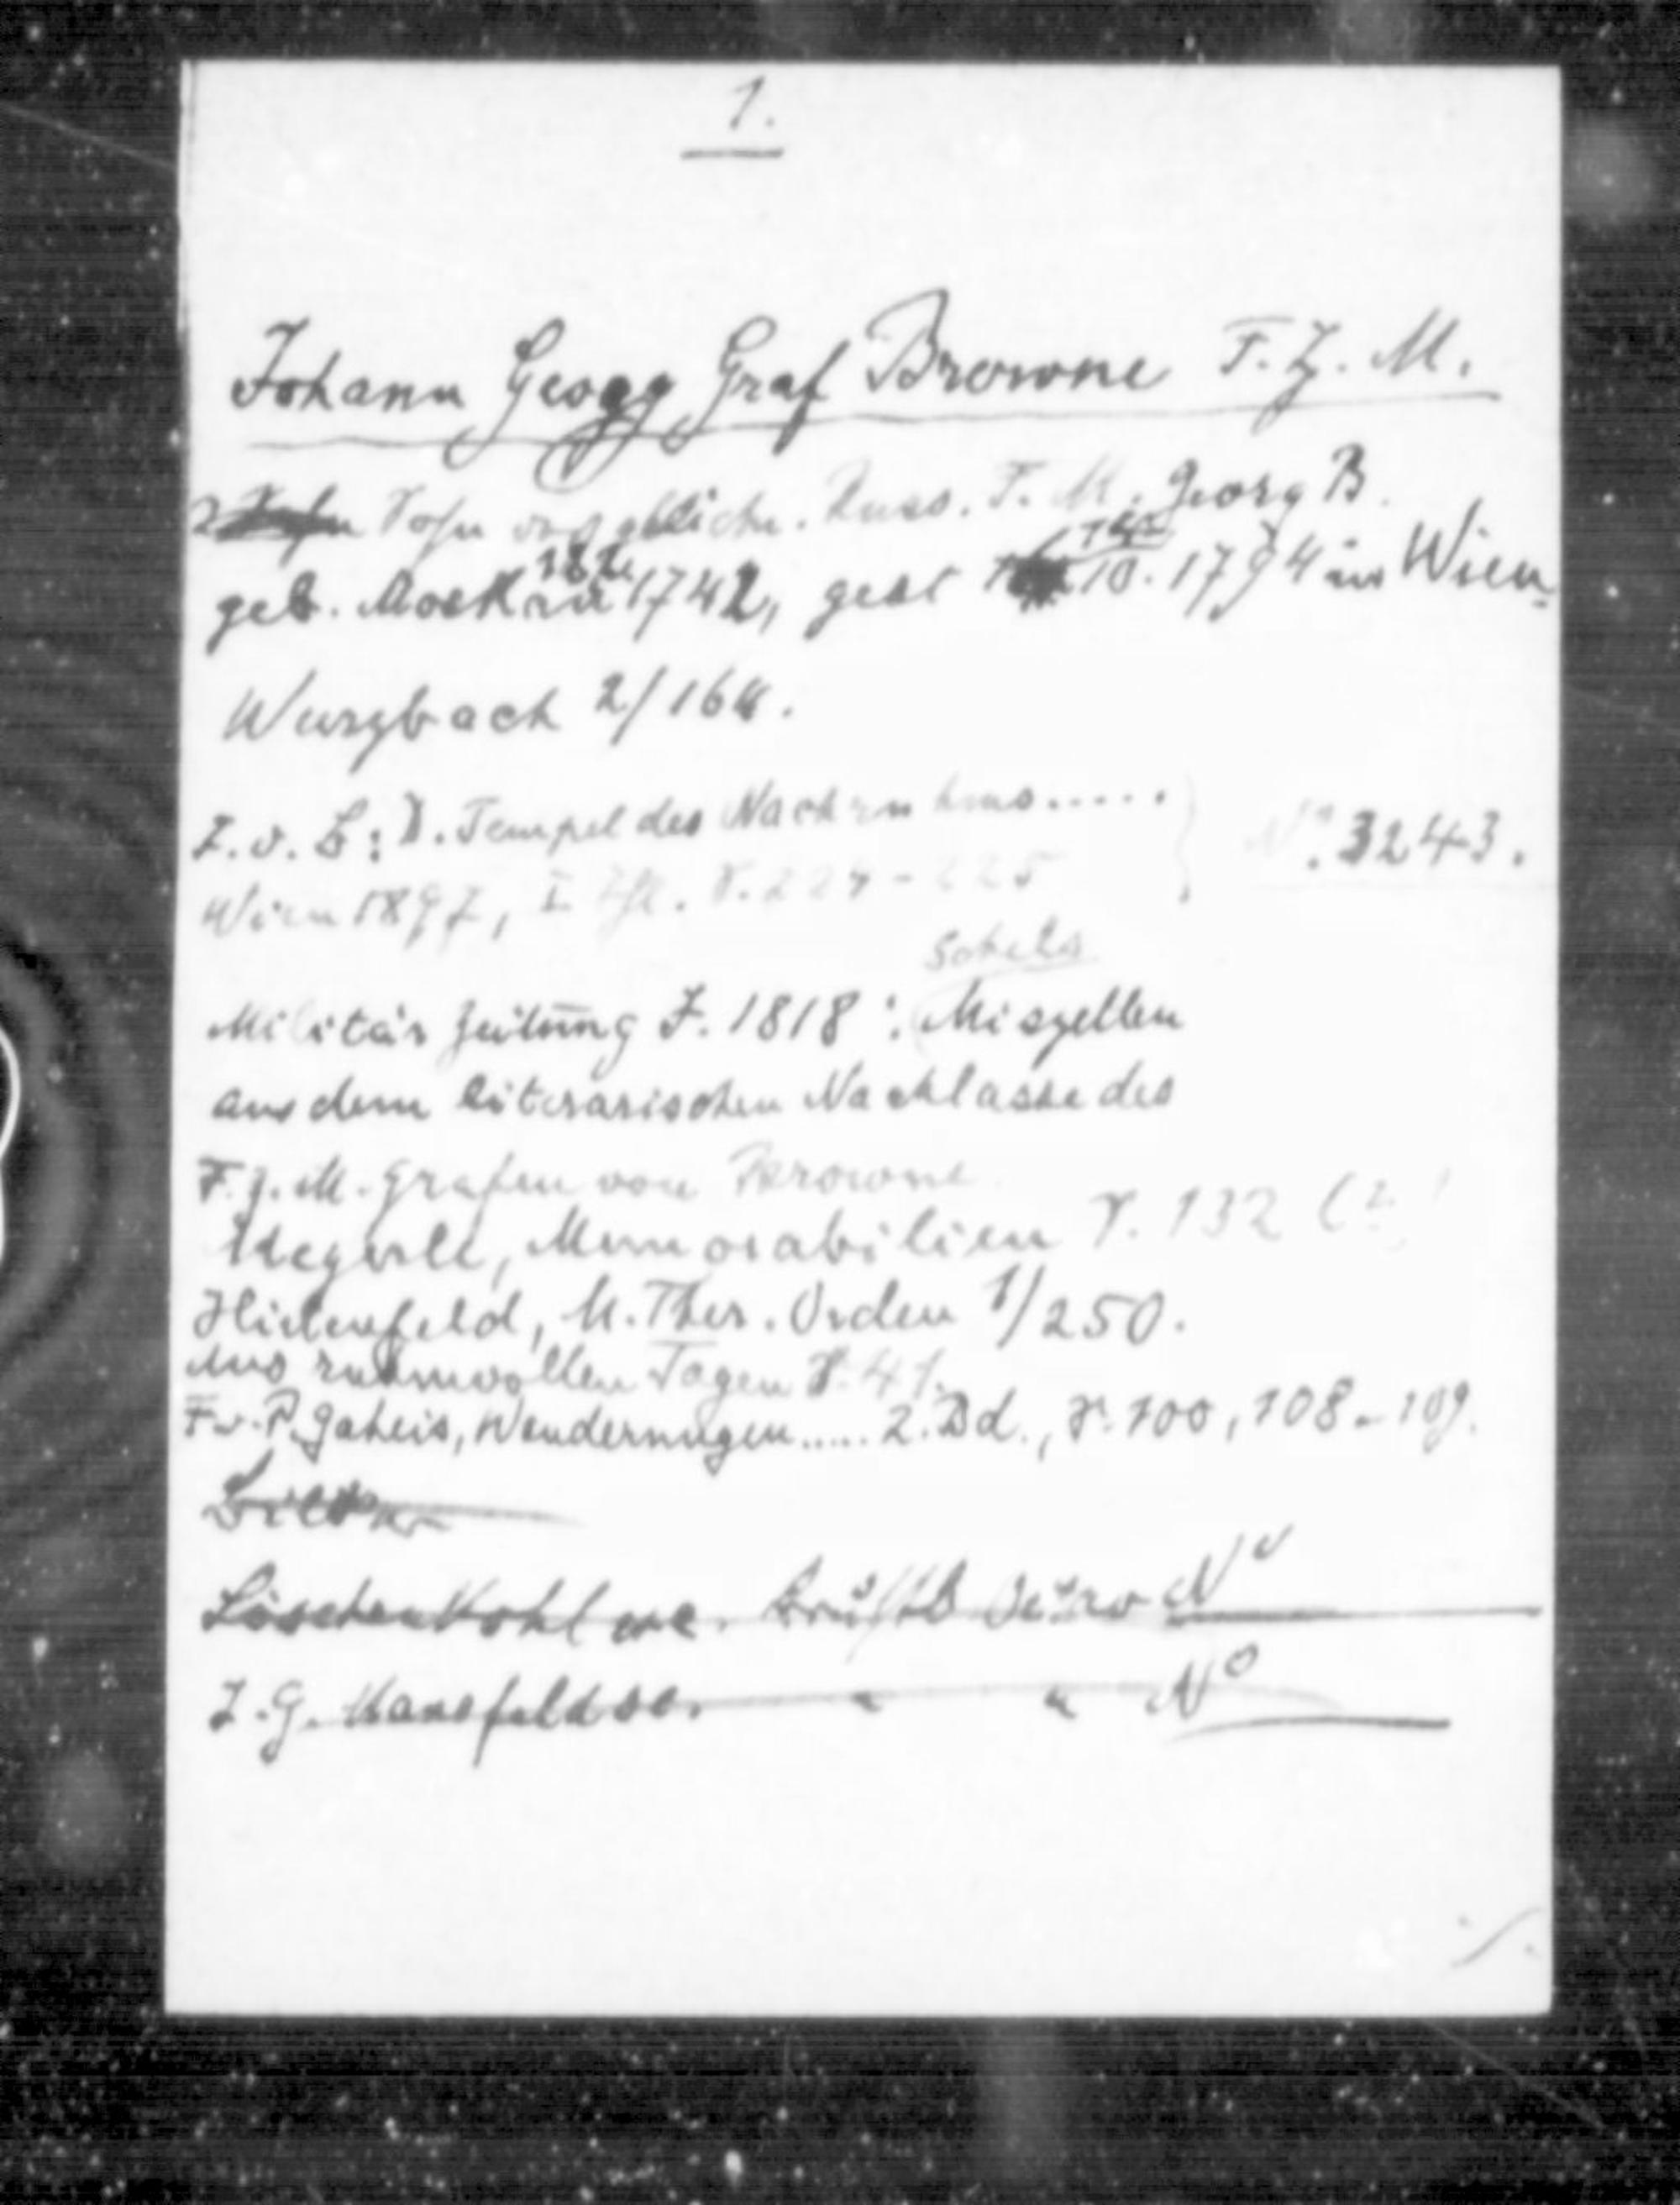 1.
Johann Georg Graf Browne F. Z. M.
2 Sohn des Russ. F. M. Georg B.
geb. Moskau 1742, gest 10. 1794 in Wien.
Wurzbach 2/164.
I. v. L: D. Tempel des Nachruhms..... No. 3243.
Wien 1797, I S. 224-225
Schels
Militär Zeitung J. 1818: Miszellen
aus dem literarischen Nachlasse des
F. Z. M. Grafen von Browne
Megerle, Memorabilien S. 132 (
Hirtenfeld, M. Ther. Orden 1/250.
Aus ruhmvollen Tagen S. 41.
F. v. P. Gaheis, Wanderungen..... 2. Bd., S. 100, 108-109.
Bilder
Löschenkohl sc. Brustb No
J. G. Mansfeld sc. " " No
./.